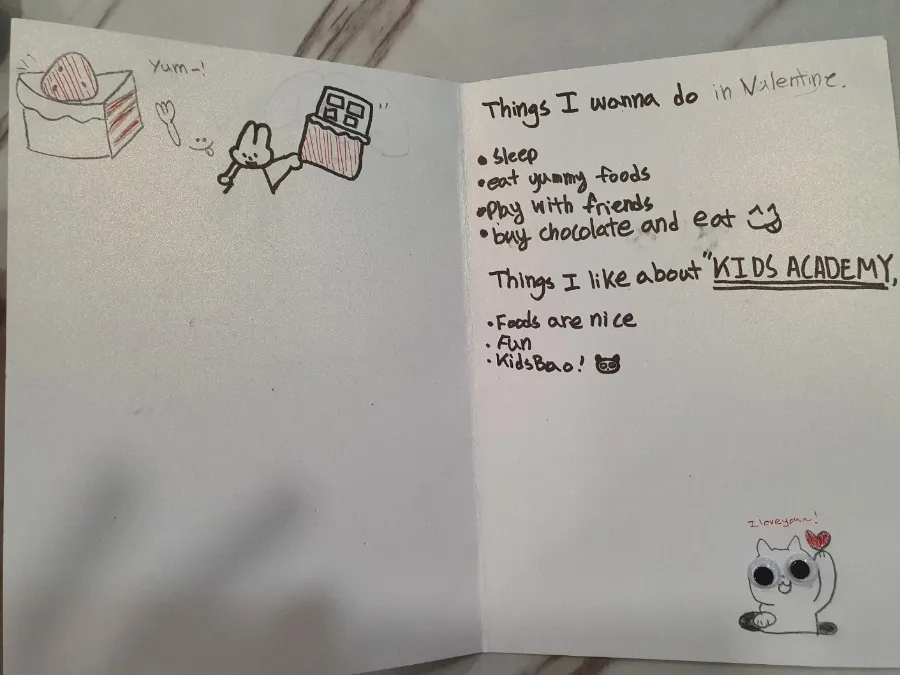 Yum~!
Things I wanna do in Valentine.
• Sleep
• eat yummy foods
• Play with friends
• buy chocolate and eat
Things I like about "KIDS ACADEMY,
• Foods are nice
• Fun
• KidsBao!
I love you~!